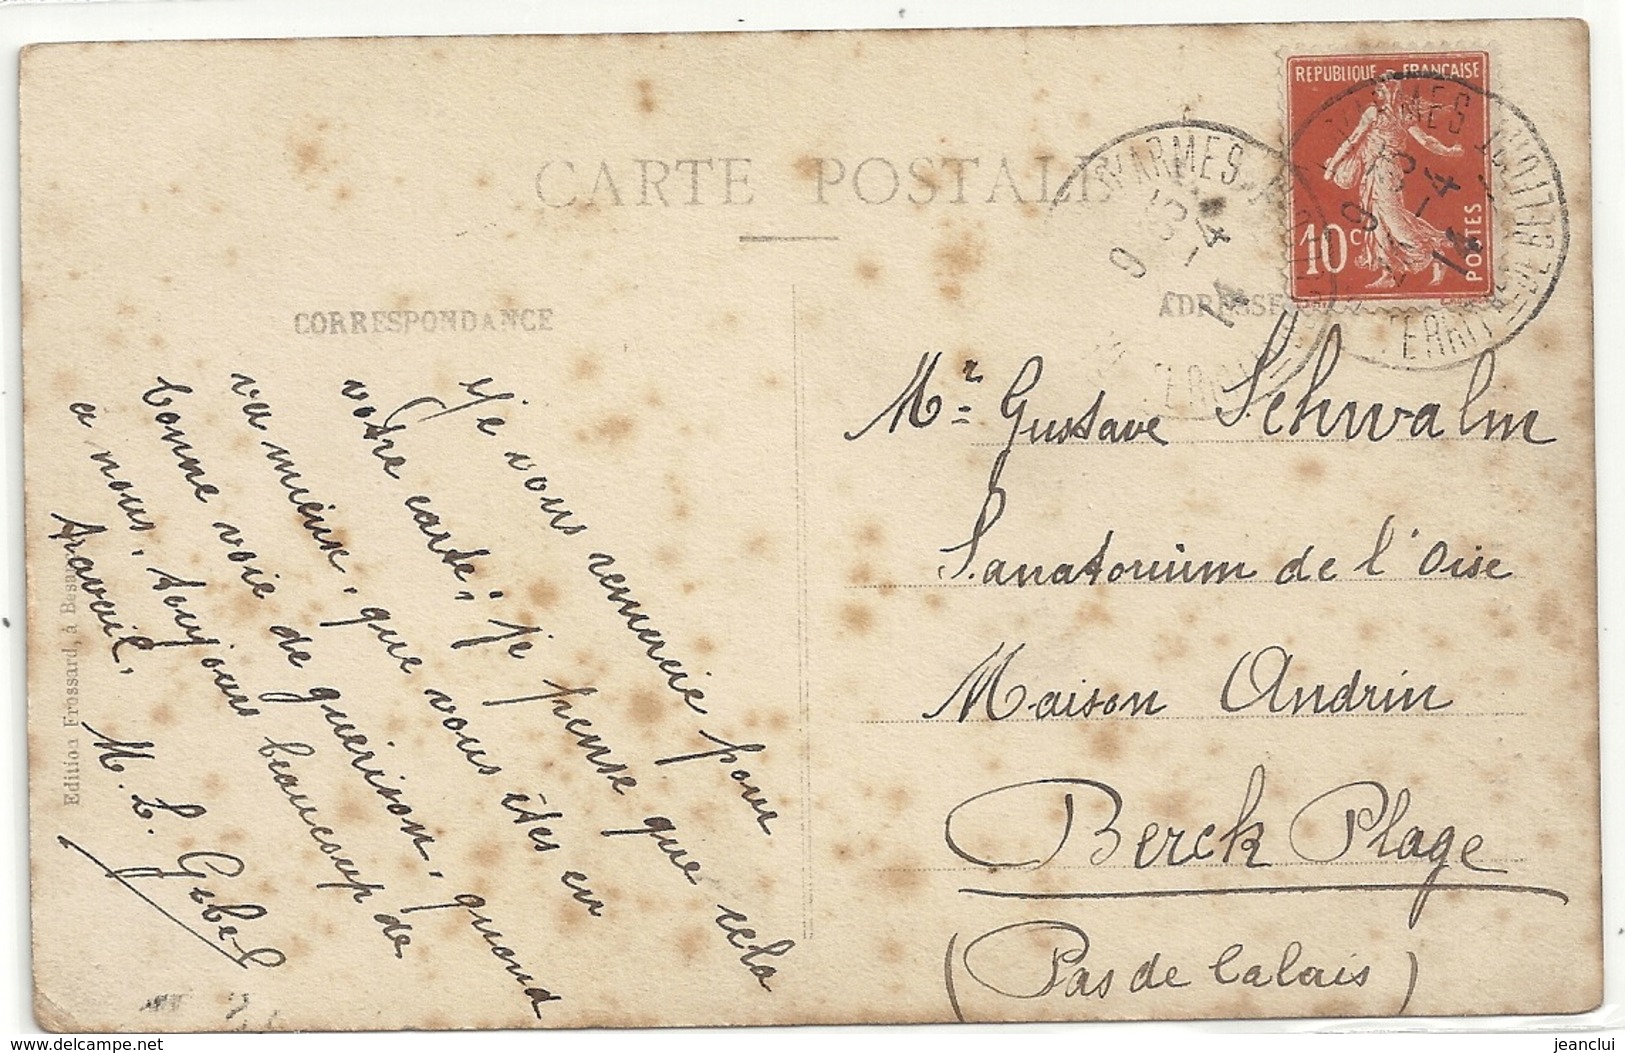 CARTE POSTALE
CORRESPONDANCE
ADRESSE
REPUBLIQUE FRANÇAISE
10 c
POSTES
Je vous remercie pour
votre carte, je pense que cela
va mieux, que vous êtes en
bonne voie de guérison, quand
a nous, toujours beaucoup de
travail.
M. L. Gebel
Mr Gustave Schwalm
Sanatorium de l'Oise
Maison Andrin
Berck Plage
(Pas de Calais)
Edition Frossard, à Besan
delcampe.net
jeanclui